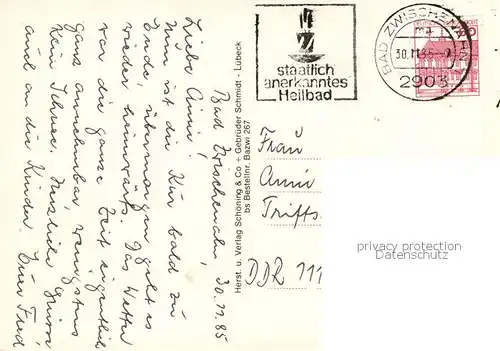 Bad Zwischenahn, 30.11.85
Liebe Anni!
Nun ist die Kur bald zu
Ende, übermorgen geht es
wieder heimwärts. Das Wetter
war die ganze Zeit eigentlich
ganz annehmbar, wenigstens
kein Schnee. Herzliche Grüsse
auch an die Kinder. Euer Fred
Herst. u. Verlag Schöning & Co + Gebrüder Schmidt - Lübeck
bs Bestellnr. Bazwi 267
staatlich
anerkanntes
Heilbad
BAD ZWISCHENAHN
30.11.85
2903
Frau
Anni
Trifts
DDR 111
privacy protection
Datenschutz